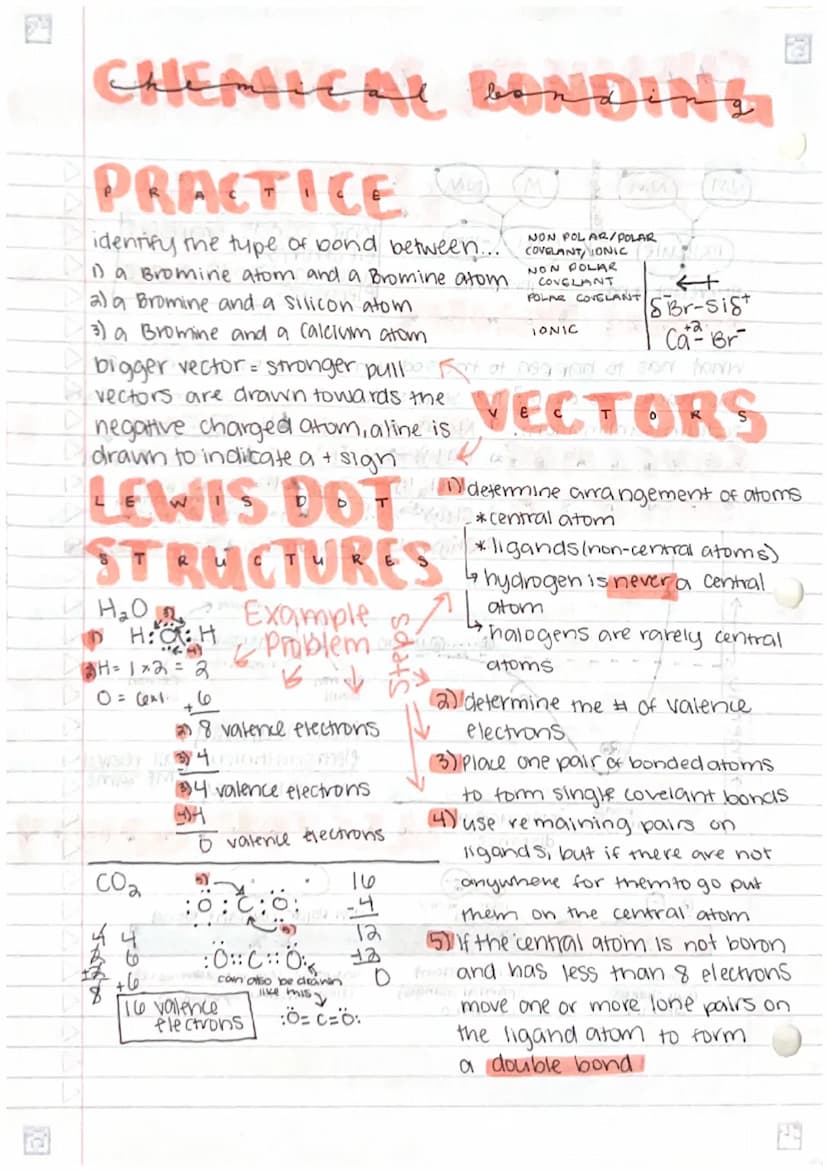 CHEMICAL BONDING
chemical bonding
PRACTICE
PRACTICE
identify the type of bond between...
NON POLAR/POLAR
COVELANT/IONIC
1) a Bromine atom and a Bromine atom
NON POLAR
COVELANT
2) a Bromine and a silicon atom
POLAR COVELANT
δ⁻Br-Siδ⁺
3) a Bromine and a Calcium atom
IONIC
Ca⁺²- Br⁻
bigger vector = stronger pull
vectors are drawn towards the
negative charged atom, a line is
drawn to indicate a + sign
VECTORS
VECTORS
LEWIS DOT
LEWIS DOT
STRUCTURES
STRUCTURES
H₂O
Example
Problem
Steps
1) H:O:H
4)
2) H = 1x2 = 2
O = 6x1
+6
2) 8 valence electrons
3) 4
3) 4 valence electrons
4) -4
0 valence electrons
1) determine arrangement of atoms
*central atom
*ligands (non-central atoms)
hydrogen is never a central
atom
halogens are rarely central
atoms
2) determine the # of valence
electrons
3) Place one pair of bonded atoms
to form single covelant bonds
4) use remaining pairs on
ligands, but if there are not
anywhere for them to go put
them on the central atom
5) If the central atom is not boron
and has less than 8 electrons
move one or more lone pairs on
the ligand atom to form
a double bond
CO₂
5)
:O:C:O:
5)
:O::C::O:
can also be drawn
like this
:O=C=O:
16
-4
12
-12
0
4
6
+2
8
4
6
+6
16 valence
electrons